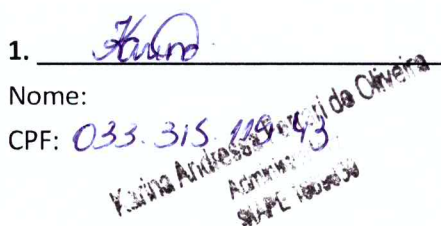 1. Karina
Nome:
CPF: 033.315.119-43
Karina Andressa de Oliveira
Administ
SIAPE